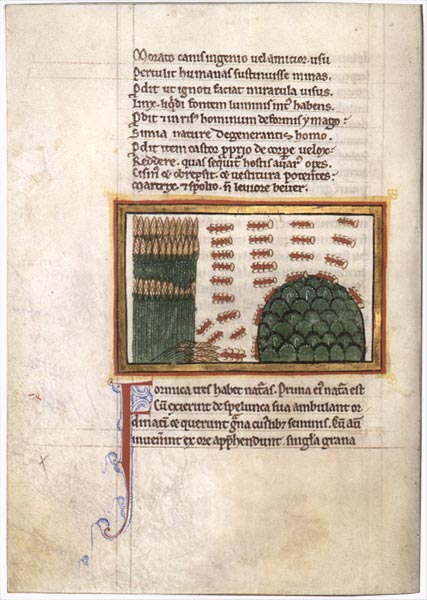 Morato canis ingenio uel amicior usu
Pertulit humanas sustinuisse minas.
Pdit ut ignoti faciat miracula uisus.
Linx. liqdi fontem luminis int habens.
Pdit & in risu hominum deformis ymago:
Simia nature degenerantis homo.
Pdit item castor pprio de corpe uelox:
Reddere. quas sequit hostis auar opes.
& obrepsit. & uestitura potentes:
Martrix. & spolio. n leuiore beuer.
Formica tres habet natas. Prima ei nata est
Cu exierint de spelunca sua ambulant or
dinati & querunt gna seminis. Cu
inuenint ex ore apphendunt singla grana